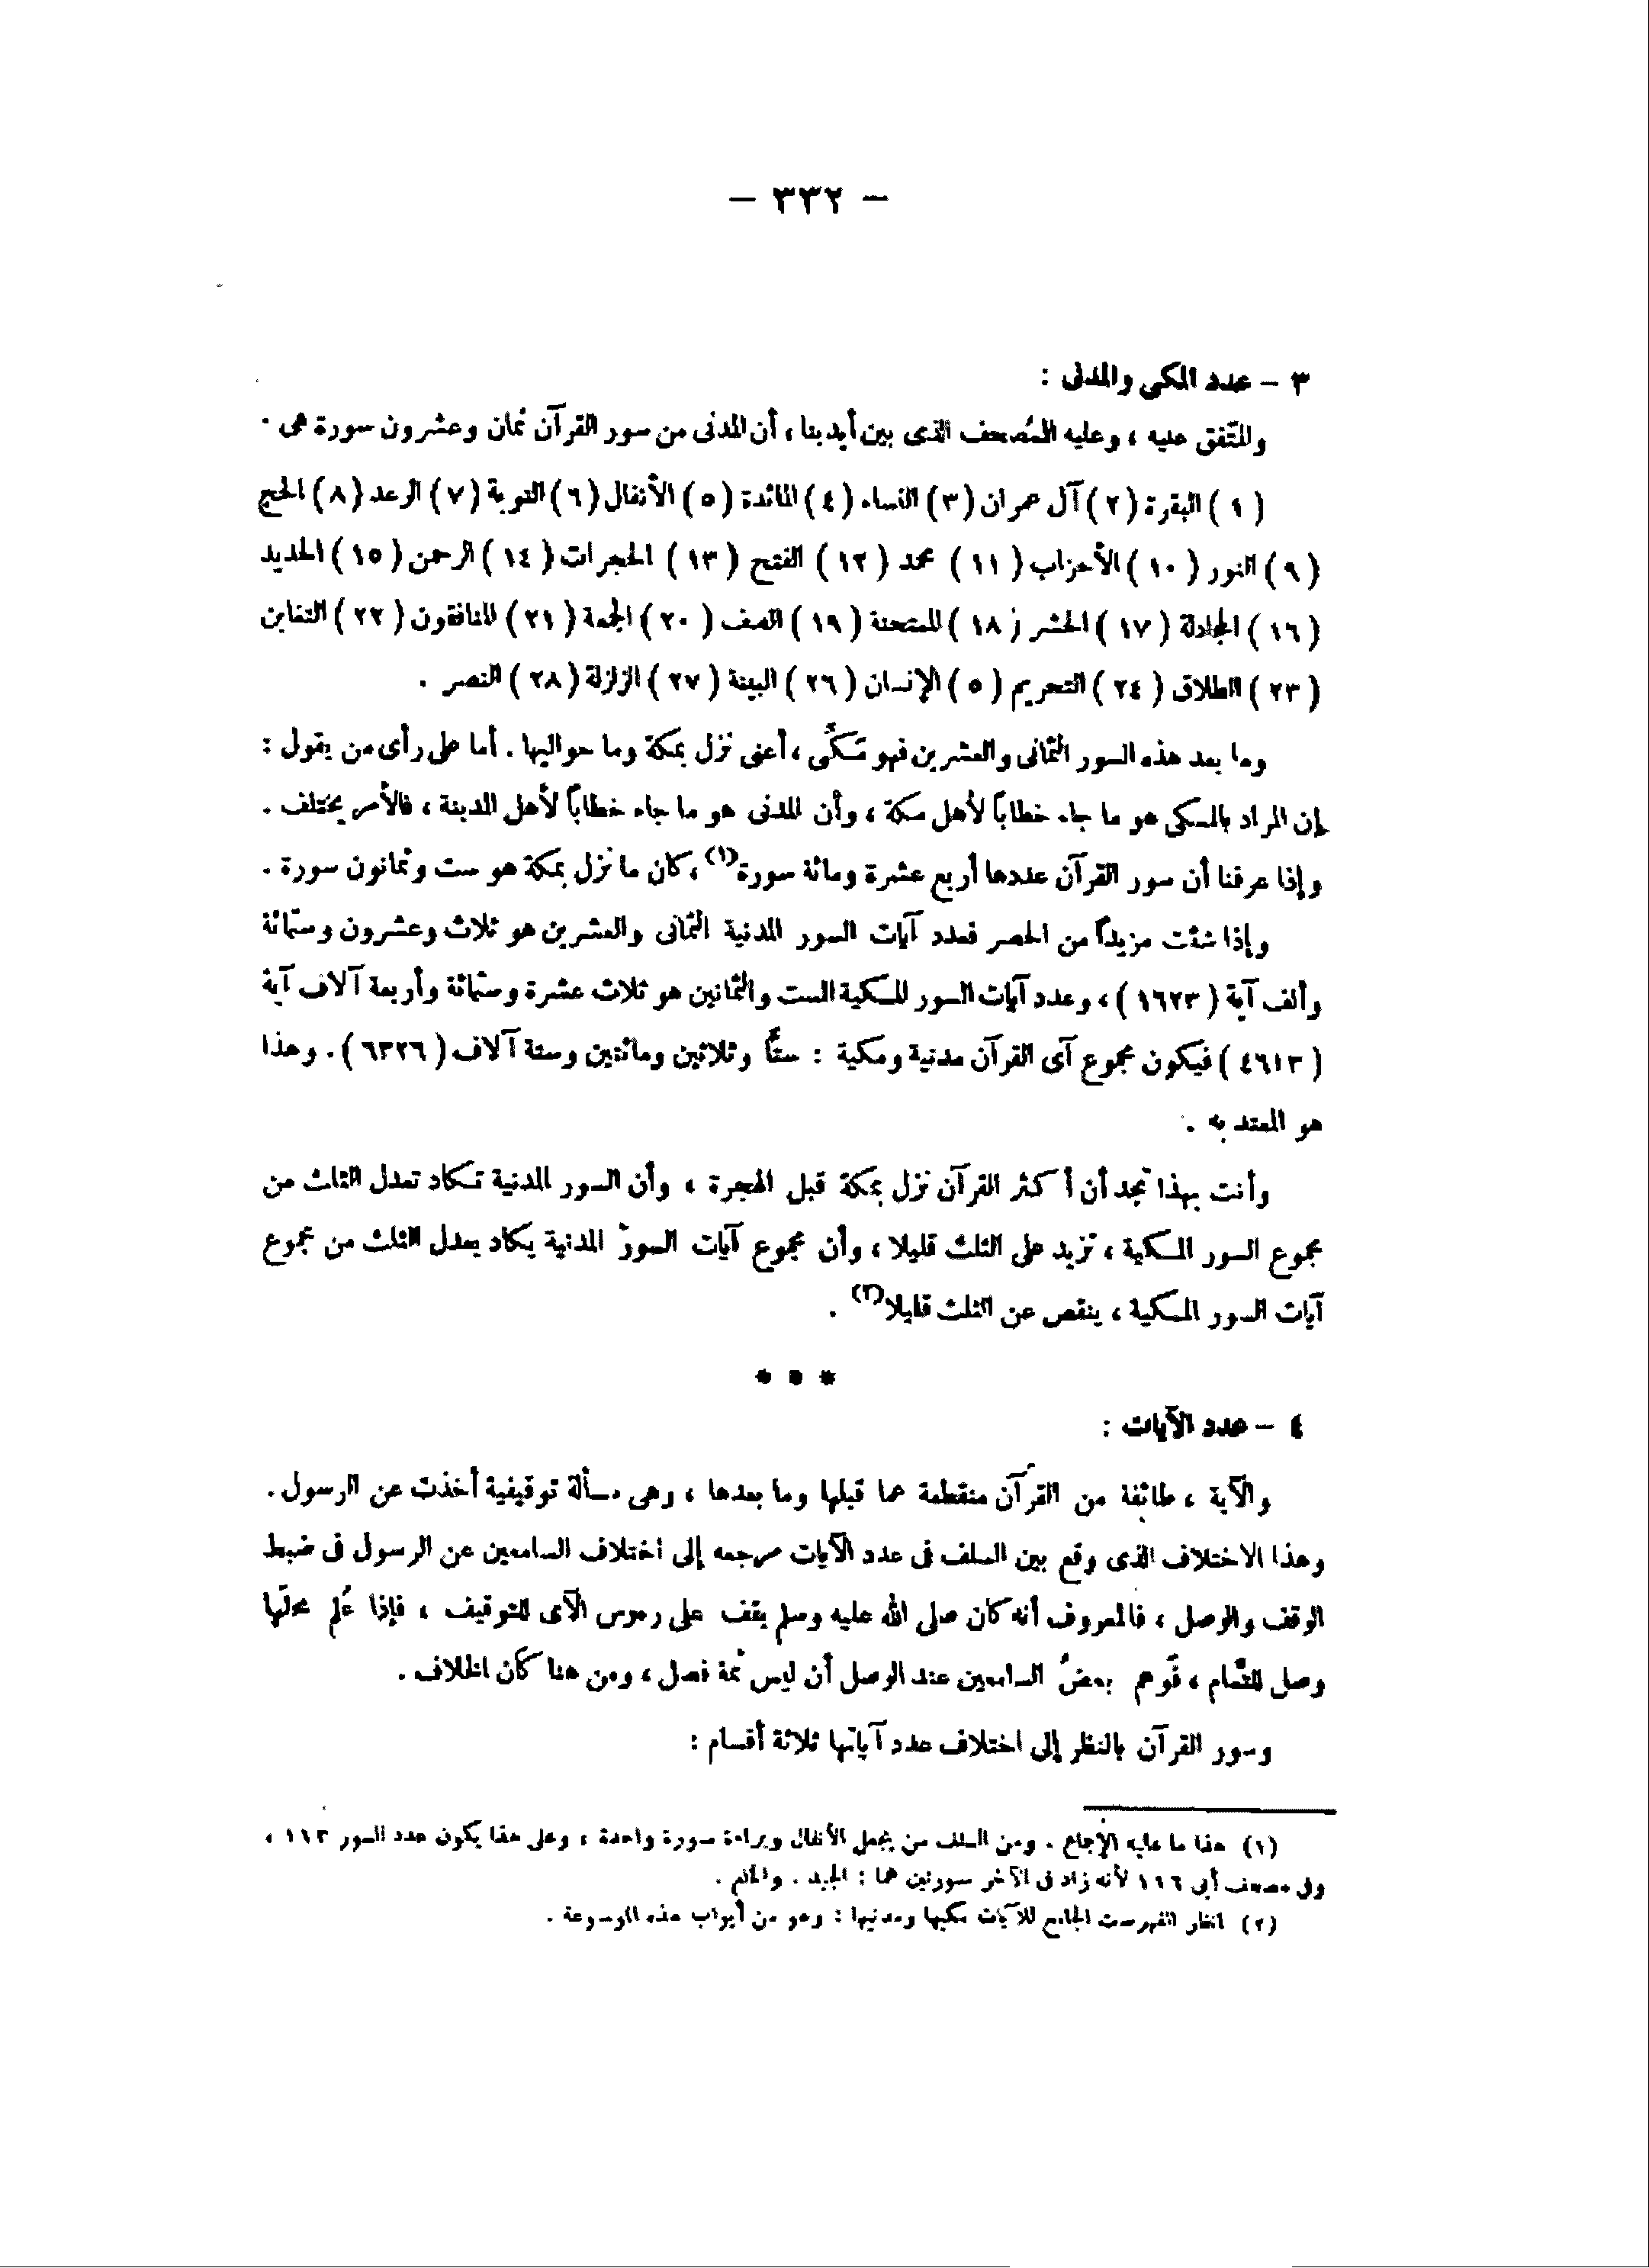 — ٣٣٢ —
٣ — عدد المكى والمدنى :
والمتّفق عليه ، وعليه المُصحف الذى بين أيدينا ، أن المدنى من سور القرآن ثمان وعشرون سورة هى .
( ١ ) البقرة ( ٢ ) آل عمران ( ٣ ) النساء ( ٤ ) المائدة ( ٥ ) الأنفال ( ٦ ) التوبة ( ٧ ) الرعد ( ٨ ) الحج
( ٩ ) النور ( ١٠ ) الأحزاب ( ١١ ) محمد ( ١٢ ) الفتح ( ١٣ ) الحجرات ( ١٤ ) الرحمن ( ١٥ ) الحديد
( ١٦ ) المجادلة ( ١٧ ) الحشر ( ١٨ ) الممتحنة ( ١٩ ) الصف ( ٢٠ ) الجمعة ( ٢١ ) المنافقون ( ٢٢ ) التغابن
( ٢٣ ) الطلاق ( ٢٤ ) التحريم ( ٥ ) الإنسان ( ٢٦ ) البينة ( ٢٧ ) الزلزلة ( ٢٨ ) النصر .
وما بعد هذه السور الثمانى والعشرين فهو مَكىٌّ ، أعنى نزل بمكة وما حواليها . أما على رأى من يقول :
إن المراد بالمكى هو ما جاء خطاباً لأهل مكة ، وأن المدنى هو ما جاء خطاباً لأهل المدينة ، فالأمر يختلف .
وإذا عرفنا أن سور القرآن عددها أربع عشرة ومائة سورة(١) ، كان ما نزل بمكة هو ست وثمانون سورة .
وإذا شئت مزيداً من الحصر فعدد آيات السور المدنية الثمانى والعشرين هو ثلاث وعشرون وستمائة
وألف آية ( ١٦٢٣ ) ، وعدد آيات السور المكية الست والثمانين هو ثلاث عشرة وستمائة وأربعة آلاف آية
( ٤٦١٣ ) فيكون مجموع آى القرآن مدنية ومكية : ستًّا وثلاثين ومائتين وستة آلاف ( ٦٣٢٦ ) . وهذا
هو المعتد به .
وأنت بهذا تجد أن أكثر القرآن نزل بمكة قبل الهجرة ، وأن السور المدنية تكاد تعدل الثلث من
مجموع السور المكية ، تزيد على الثلث قليلا ، وأن مجموع آيات السور المدنية يكاد يعدل الثلث من مجموع
آيات السور المكية ، ينقص عن الثلث قليلا(٢) .
* * *
٤ — عدد الآيات :
والآية ، طائفة من القرآن منقطعة عما قبلها وما بعدها ، وهى مسألة توقيفية أخذت عن الرسول .
وهذا الاختلاف الذى وقع بين السلف فى عدد الآيات مرجعه إلى اختلاف السامعين عن الرسول فى ضبط
الوقف والوصل ، فالمعروف أنه كان صلى الله عليه وسلم يقف على رءوس الآى للتوقيف ، فإذا عُلم محلّها
وصل للتَّمام ، فوَهم بعضُ السامعين عند الوصل أن ليس ثمة فصل ، ومن هنا كان الخلاف .
وسور القرآن بالنظر إلى اختلاف عدد آياتها ثلاثة أقسام :
(١) هذا ما عليه الإجماع . ومن السلف من يجعل الأنفال وبراءة سورة واحدة ، وعلى هذا يكون عدد السور ١١٣ ،
وفى مصحف أبى ١١٦ لأنه زاد فى الآخر سورتين هما : الحفد . والخلع .
(٢) انظر الفهرست الجامع للآيات مكيها ومدنيها : وهو من أبواب هذه الموسوعة .